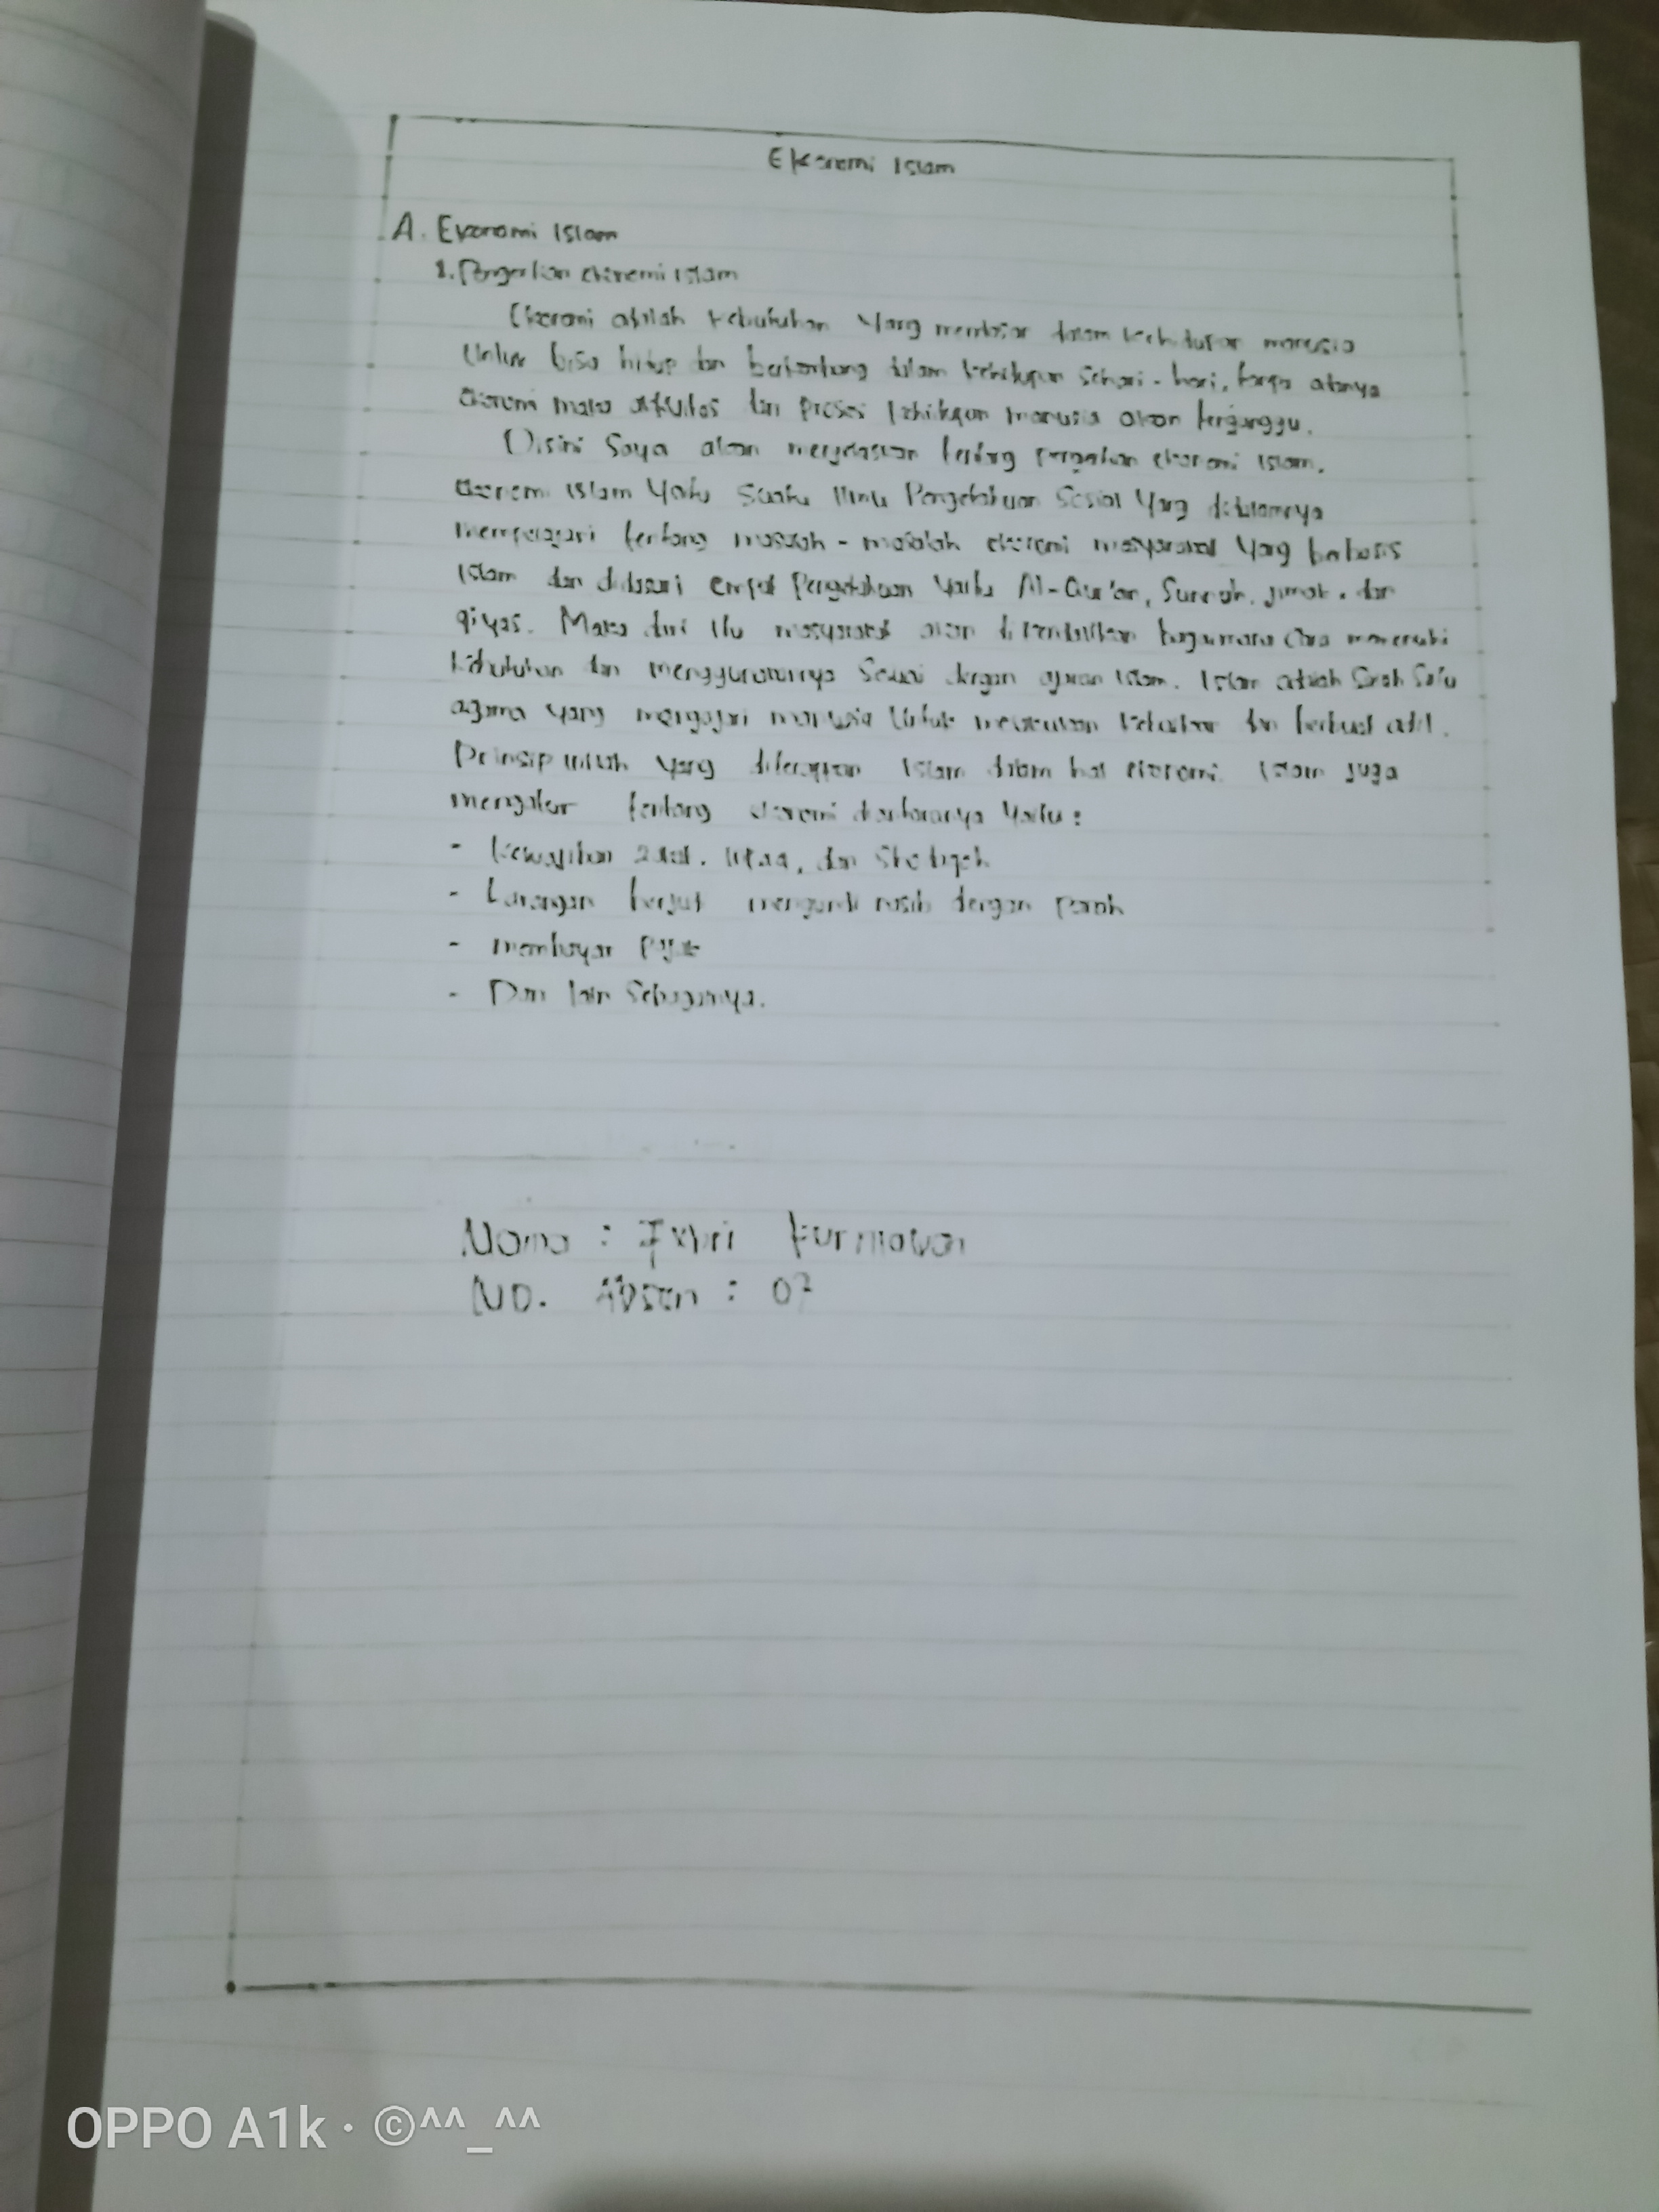 Ekonomi Islam
A. Ekonomi Islam
1. Pengertian ekonomi islam
Ekonomi adalah kebutuhan yang mendasar dalam kehidupan manusia
Untuk bisa hidup dan berkembang dalam kehidupan sehari-hari, tanpa adanya
ekonomi maka aktivitas dan proses kehidupan manusia akan terganggu.
Disini saya akan menjelaskan tentang pengertian ekonomi islam.
ekonomi islam yaitu suatu ilmu Pengetahuan Sosial yang didalamnya
mempelajari tentang masalah-masalah ekonomi masyarakat yang berbasis
Islam dan didasari empat Pengetahuan yaitu Al-Qur'an, Sunnah, ijmak, dan
qiyas. Maka dari itu masyarakat akan bagaimana cara memenuhi
kebutuhan dan menggunakannya Sesuai dengan ajaran islam. Islam adalah Salah Satu
agama yang mengajari manusia Untuk melakukan kebaikan dan berbuat adil.
Prinsip inilah yang diterapkan Islam dalam hal ekonomi. Islam juga
mengatur tentang ekonomi diantaranya yaitu:
- Kewajiban zakat, infaq, dan Shodaqoh
- Larangan berjudi mengundi nasib dengan panah
- membayar pajak
- Dan lain Sebagainya.
Nama :
No. Absen : 07
OPPO A1k · ©^^_^^